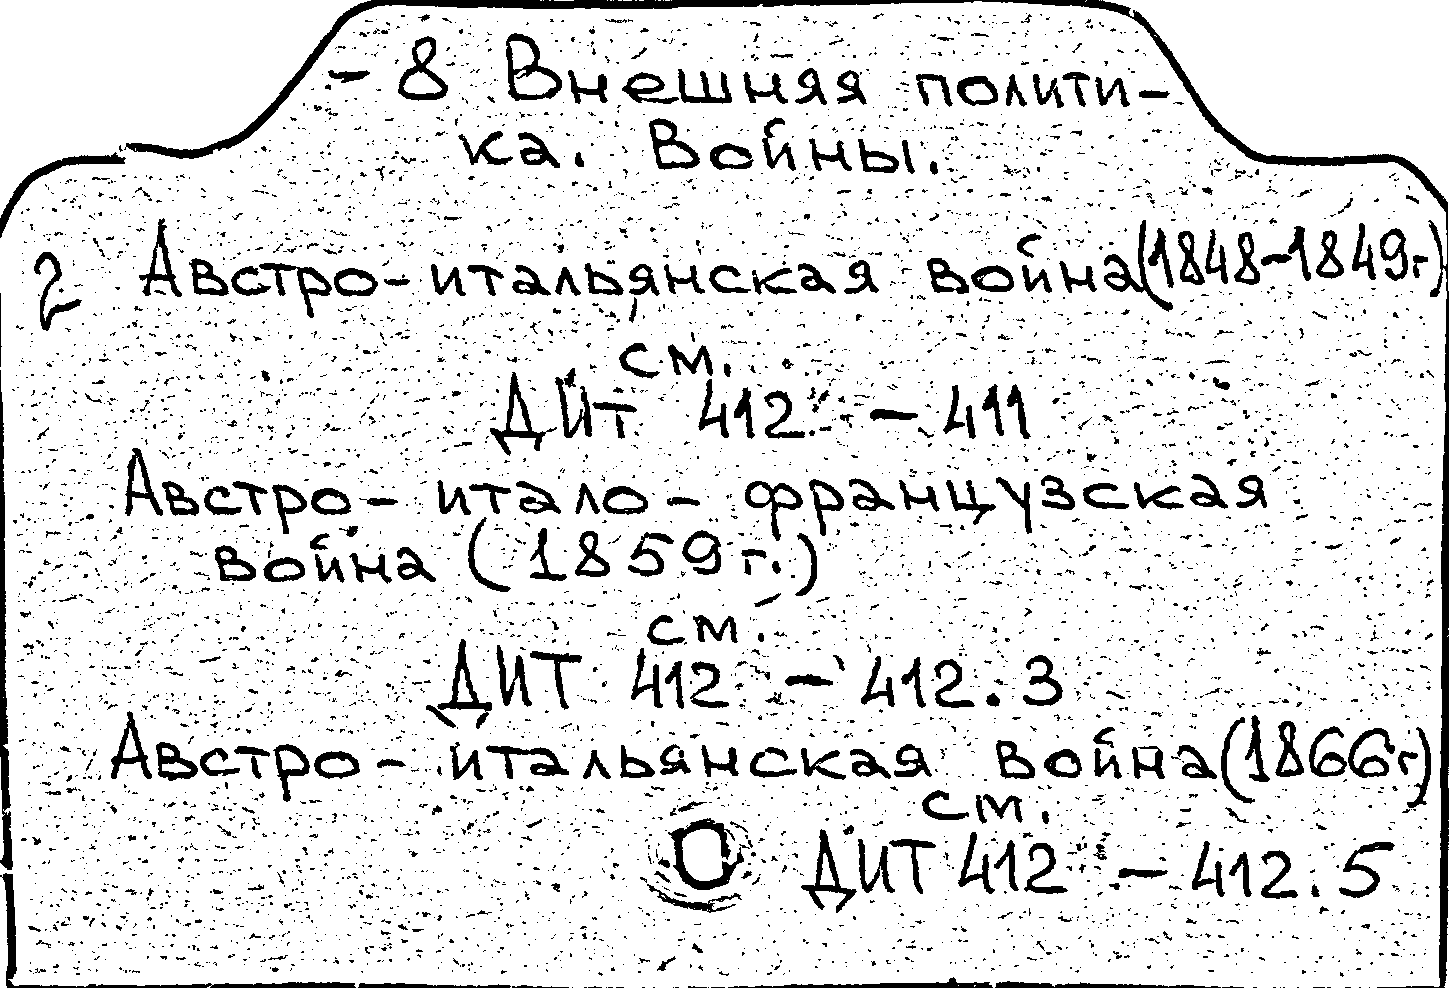 - 8 Внешняя полити-
ка. Войны.
2 Австро-итальянская война (1848-1849г.)
см.
ДИТ 412 - 411
Австро-итало-французская
война (1859г.)
см.
ДИТ 412 - 412.3
Австро-итальянская война (1866г)
см.
ДИТ 412 - 412.5